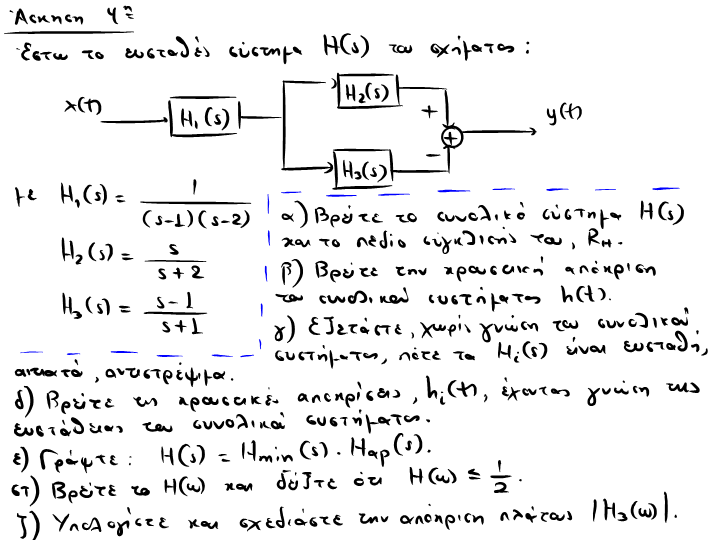 Άσκηση 4η
Έστω το ευσταθές σύστημα H(s) του σχήματος:
x(t)
H₁(s)
H₂(s)
H₃(s)
+
+
−
y(t)
με H₁(s) = 1 / (s-1)(s-2)
H₂(s) = s / s+2
H₃(s) = s-1 / s+1
α) Βρείτε το συνολικό σύστημα H(s)
και το πεδίο σύγκλισής του, R_H.
β) Βρείτε την κρουστική απόκριση
του συνολικού συστήματος h(t).
γ) Εξετάστε, χωρίς γνώση του συνολικού
συστήματος, πότε τα Hᵢ(s) είναι ευσταθή,
αιτιατά, αντιστρέψιμα.
δ) Βρείτε τις κρουστικές αποκρίσεις, hᵢ(t), έχοντας γνώση της
ευστάθειας του συνολικού συστήματος.
ε) Γράψτε: H(s) = Hmin(s) · Hap(s).
στ) Βρείτε το H(ω) και δείξτε ότι H(ω) ≤ 1/2.
ζ) Υπολογίστε και σχεδιάστε την απόκριση πλάτους |H₃(ω)|.